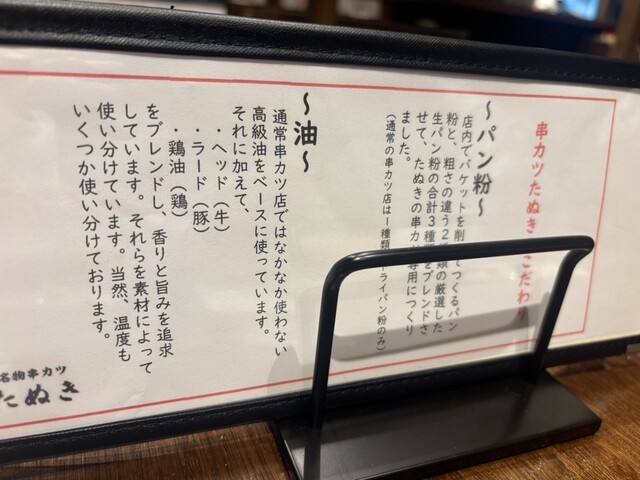 串カツたぬき こだわり
〜パン粉〜
店内でバケットを削ってつくるパン
粉と、粗さの違う2種類の厳選した
生パン粉の合計3種をブレンドさ
せて、たぬきの串カツ専用につくり
ました。
(通常の串カツ店は1種類 ドライパン粉のみ)
〜油〜
通常串カツ店ではなかなか使わない
高級油をベースに使っています。
それに加えて、
・ヘッド(牛)
・ラード(豚)
・鶏油(鶏)
をブレンドし、香りと旨みを追求
しています。それらを素材によって
使い分けています。当然、温度も
いくつか使い分けております。
名物串カツ
たぬき